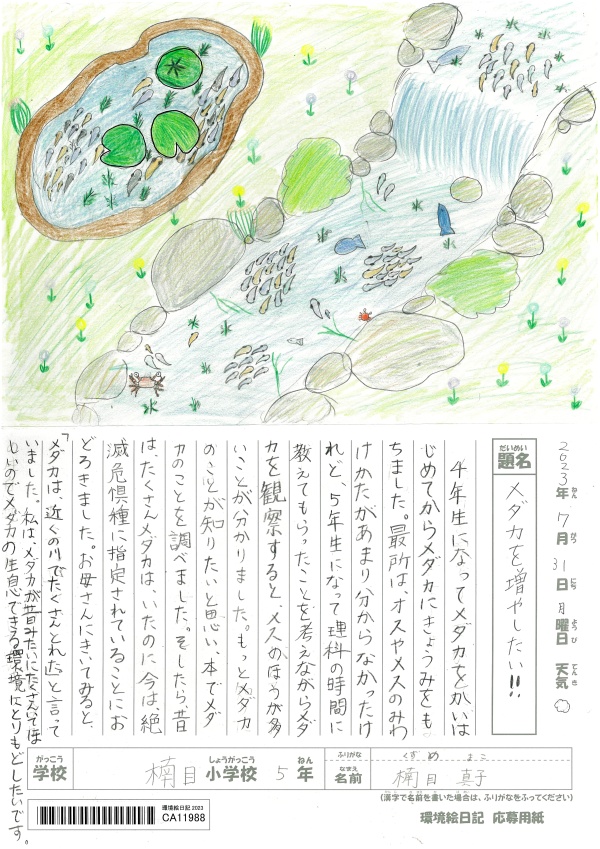 2023年ねん 7月がつ 31日にち 月曜日ようび 天気てんき
だいめい
題名
メダカを増やしたい!!
4年生になってメダカをかいは
じめてからメダカにきょうみをも
ちました。最所は、オスやメスのみわ
けかたがあまり分からなかったけ
れど、5年生になって理科の時間に
教えてもらったことを考えながらメダ
カを観察すると、メスのほうが多
いことが分かりました。もっとメダカ
のことが知りたいと思い、本でメダ
カのことを調べました。そしたら、昔
は、たくさんメダカは、いたのに今は、絶
滅危惧種に指定されていることにお
どろきました。お母さんにきいてみると、
「メダカは、近くの川でたくさんとれた」と言って
いました。私は、メダカが昔みたいにたくさんいてほ
しいのでメダカの生息できる環境にとりもどしたいです。
がっこう
学校
楠目
しょうがっこう
小学校
5
ねん
年
ふりがな
くずめ まこ
なまえ
名前
楠目 真子
(漢字で名前を書いた場合は、ふりがなをふってください)
環境絵日記 2023
CA11988
環境絵日記 応募用紙